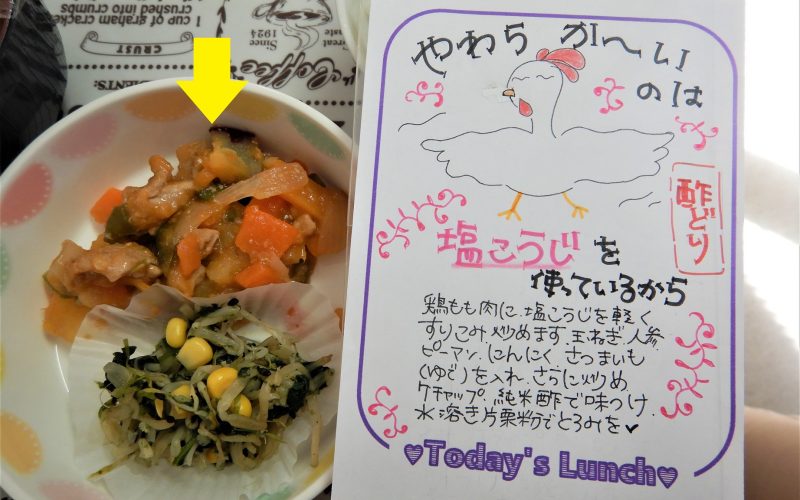 1 cup of graham cracke
crushed into crumbs
CRUST
Since
1924
Great
Coffee
やわらか〜い
のは
酢どり
塩こうじを
使っているから
鶏もも肉に、塩こうじを軽く
すりこみ、炒めます。玉ねぎ、人参、
ピーマン、にんにく、さつまいも
(ゆで)を入れ、さらに炒め
ケチャップ、純米酢で味つけ、
水溶き片栗粉でとろみを
Today's Lunch